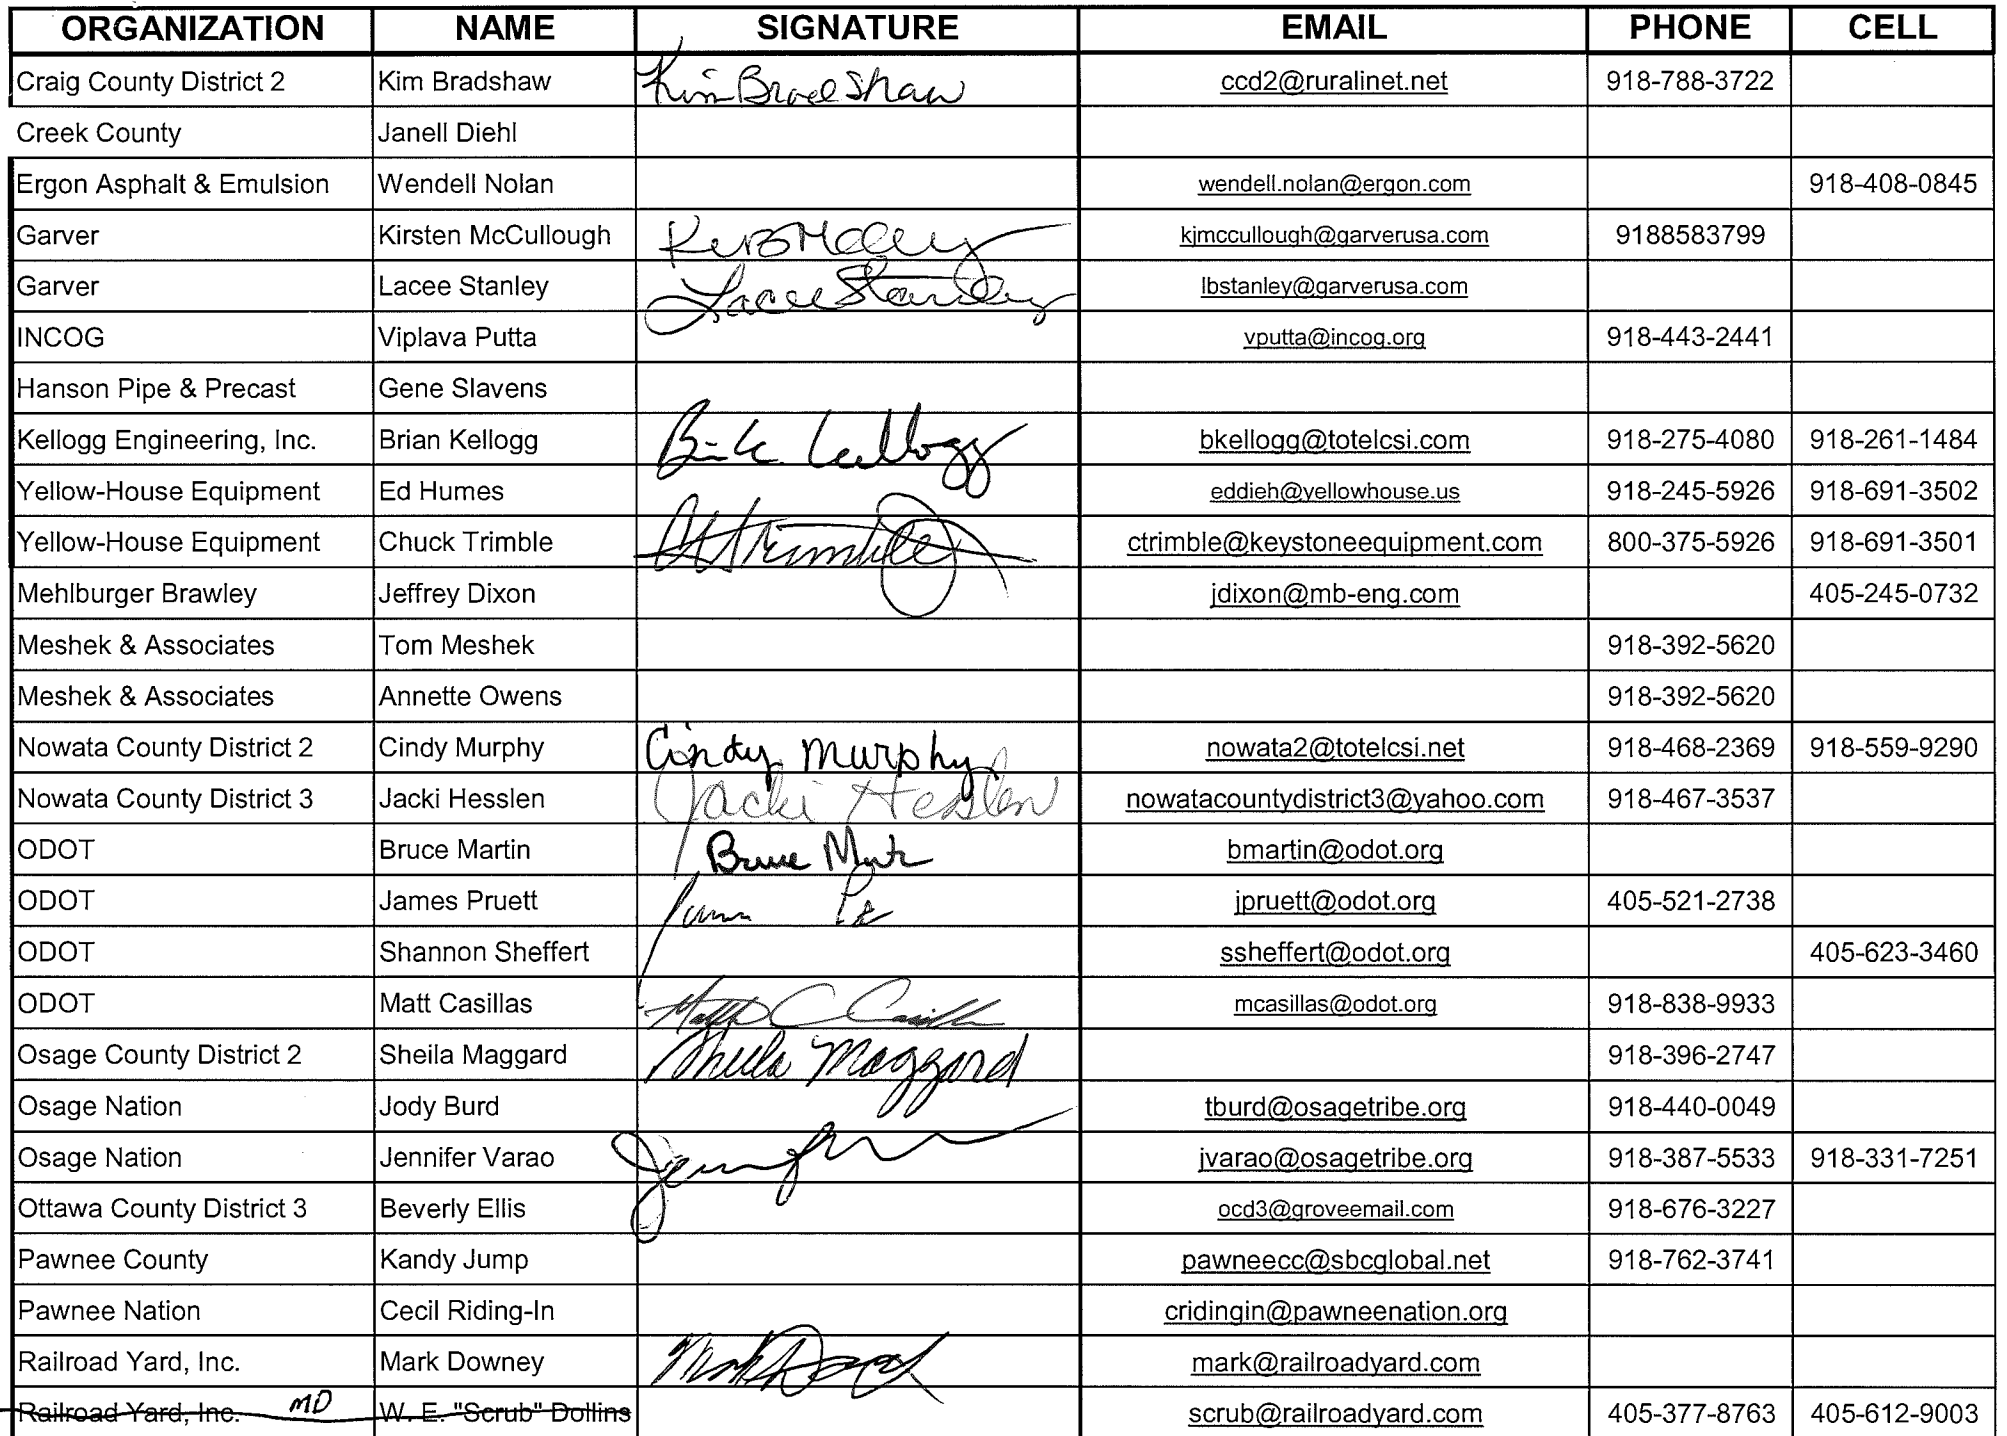 ORGANIZATION NAME SIGNATURE EMAIL PHONE CELL
Craig County District 2 Kim Bradshaw Kim Bradshaw ccd2@ruralinet.net 918-788-3722
Creek County Janell Diehl
Ergon Asphalt & Emulsion Wendell Nolan wendell.nolan@ergon.com 918-408-0845
Garver Kirsten McCullough kjmccullough@garverusa.com 9188583799
Garver Lacee Stanley Lacee Stanley lbstanley@garverusa.com
INCOG Viplava Putta vputta@incog.org 918-443-2441
Hanson Pipe & Precast Gene Slavens
Kellogg Engineering, Inc. Brian Kellogg Kellogg bkellogg@totelcsi.com 918-275-4080 918-261-1484
Yellow-House Equipment Ed Humes eddieh@yellowhouse.us 918-245-5926 918-691-3502
Yellow-House Equipment Chuck Trimble Trimble ctrimble@keystoneequipment.com 800-375-5926 918-691-3501
Mehlburger Brawley Jeffrey Dixon jdixon@mb-eng.com 405-245-0732
Meshek & Associates Tom Meshek 918-392-5620
Meshek & Associates Annette Owens 918-392-5620
Nowata County District 2 Cindy Murphy Cindy Murphy nowata2@totelcsi.net 918-468-2369 918-559-9290
Nowata County District 3 Jacki Hesslen Jacki Hesslen nowatacountydistrict3@yahoo.com 918-467-3537
ODOT Bruce Martin Bruce bmartin@odot.org
ODOT James Pruett jpruett@odot.org 405-521-2738
ODOT Shannon Sheffert ssheffert@odot.org 405-623-3460
ODOT Matt Casillas mcasillas@odot.org 918-838-9933
Osage County District 2 Sheila Maggard Sheila Maggard 918-396-2747
Osage Nation Jody Burd tburd@osagetribe.org 918-440-0049
Osage Nation Jennifer Varao jvarao@osagetribe.org 918-387-5533 918-331-7251
Ottawa County District 3 Beverly Ellis ocd3@groveemail.com 918-676-3227
Pawnee County Kandy Jump pawneecc@sbcglobal.net 918-762-3741
Pawnee Nation Cecil Riding-In cridingin@pawneenation.org
Railroad Yard, Inc. Mark Downey mark@railroadyard.com
Railroad Yard, Inc. MD W. E. "Scrub" Dollins scrub@railroadyard.com 405-377-8763 405-612-9003